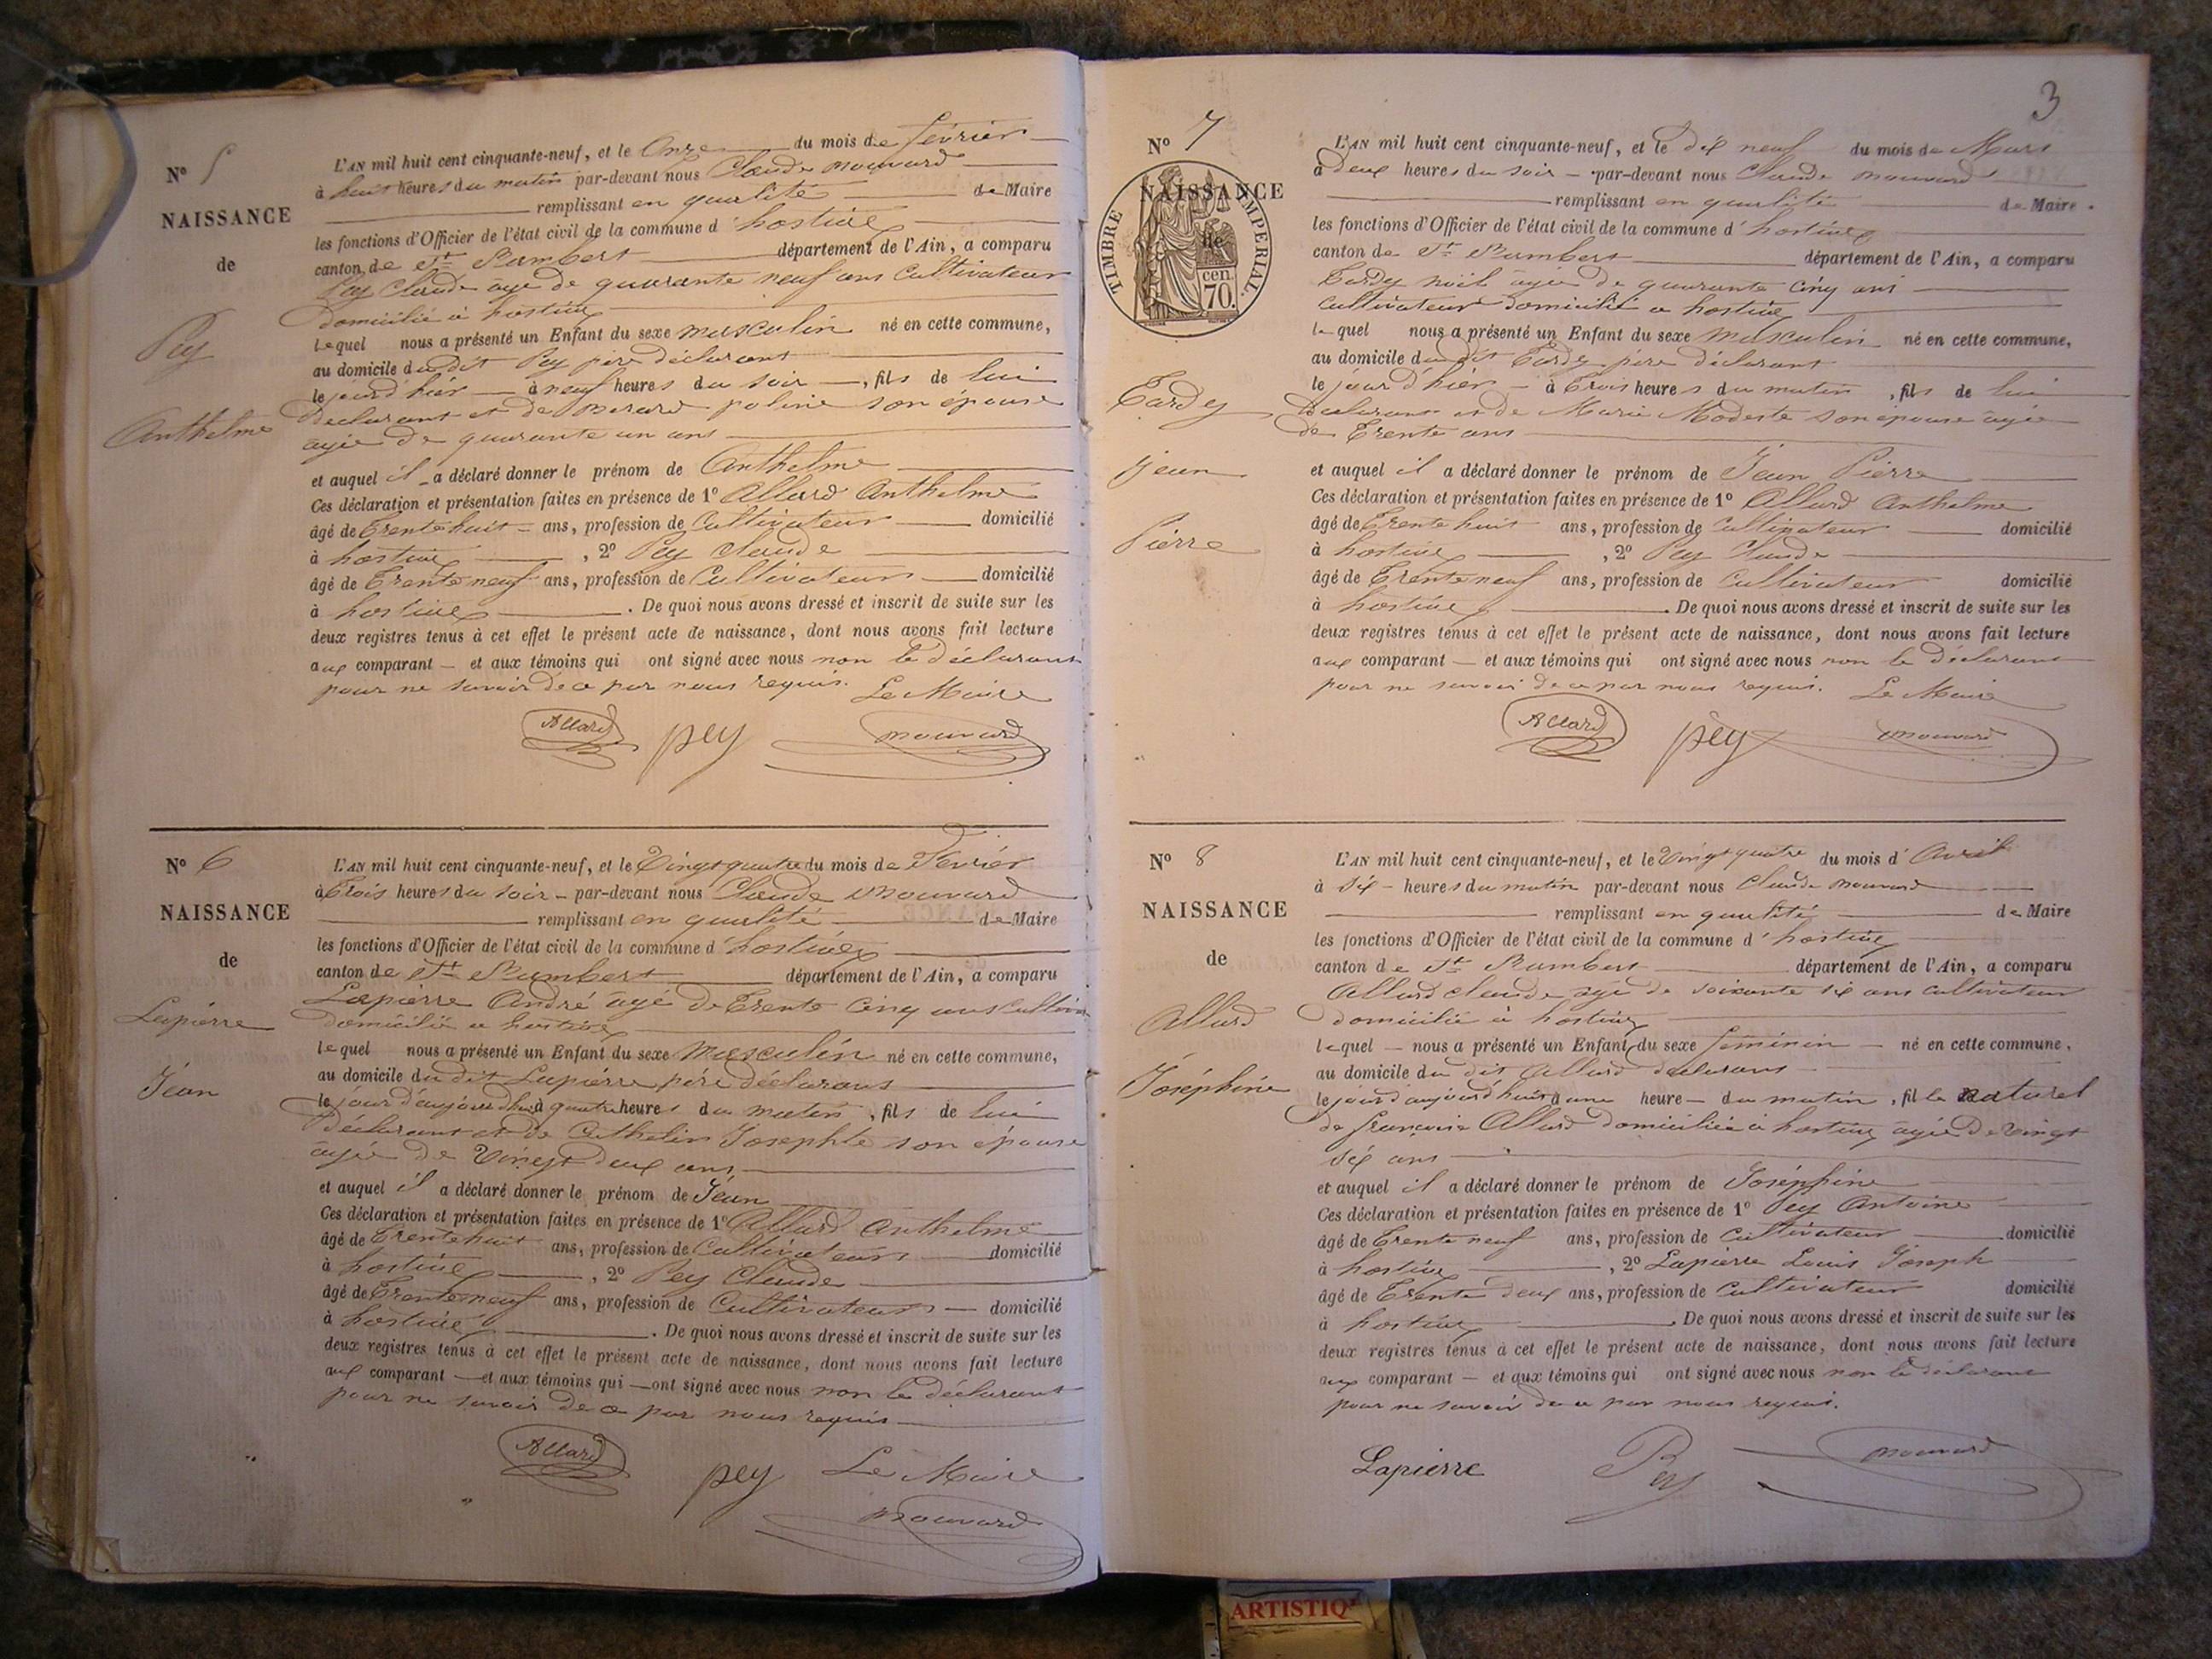 N° 5
NAISSANCE
de
Pey
Anthelme
L'AN mil huit cent cinquante-neuf, et le Onze du mois de février
à huit heures du matin par-devant nous Claude mouvard
remplissant en qualité de Maire
les fonctions d'Officier de l'état civil de la commune d' hostiaz
canton de St Rambert département de l'Ain, a comparu
Pey Claude agé de quarante neuf ans Cultivateur
domicilié à hostiaz
lequel nous a présenté un Enfant du sexe masculin né en cette commune,
au domicile du dit Pey père déclarant
le jour d'hier à neuf heures du soir, fils de lui
declarant et de poline son épouse
agée de quarante un ans
et auquel il a déclaré donner le prénom de Anthelme
Ces déclaration et présentation faites en présence de 1° Allard Anthelme
âgé de Trente huit ans, profession de Cultivateur domicilié
à hostiaz, 2° Pey Claude
âgé de Trente neuf ans, profession de Cultivateur domicilié
à hostiaz. De quoi nous avons dressé et inscrit de suite sur les
deux registres tenus à cet effet le présent acte de naissance, dont nous avons fait lecture
aux comparant et aux témoins qui ont signé avec nous non le déclarant
pour ne savoir de ce par nous requis. Le Maire
Allard pey mouvard
N° 6
NAISSANCE
de
Lapierre
Jéan
L'AN mil huit cent cinquante-neuf, et le Vingt quatre du mois de Fevrier
à Trois heures du soir par-devant nous Claude mouvard
remplissant en qualité de Maire
les fonctions d'Officier de l'état civil de la commune d' hostiaz
canton de St Rambert département de l'Ain, a comparu
Lapierre André agé de Trente Cinq ans
domicilié a hostiaz
lequel nous a présenté un Enfant du sexe masculin né en cette commune,
au domicile du dit Lapierre père déclarant
le jour d'aujourd'hui à quatre heures du matin, fils de lui
déclarant et de Josephte son épouse
agée de Vingt deux ans
et auquel il a déclaré donner le prénom de Jéan
Ces déclaration et présentation faites en présence de 1° Allard Anthelme
âgé de Trente huit ans, profession de Cultivateur domicilié
à hostiaz, 2° Pey Claude
âgé de Trente neuf ans, profession de Cultivateur domicilié
à hostiaz. De quoi nous avons dressé et inscrit de suite sur les
deux registres tenus à cet effet le présent acte de naissance, dont nous avons fait lecture
aux comparant et aux témoins qui ont signé avec nous non le déclarant
pour ne savoir de ce par nous requis
Allard pey Le Maire
mouvard
3
N° 7
TIMBRE IMPERIAL
NAISSANCE
de
cen.
70.
Tardy
jean
Pierre
L'AN mil huit cent cinquante-neuf, et le dix neuf du mois de Mars
à deux heures du soir par-devant nous Claude mouvard
remplissant en qualité de Maire
les fonctions d'Officier de l'état civil de la commune d' hostiaz
canton de St Rambert département de l'Ain, a comparu
Tardy noël agée de quarante cinq ans
cultivateur domicilié a hostiaz
lequel nous a présenté un Enfant du sexe masculin né en cette commune,
au domicile du dit Tardy père déclarant
le jour d'hier à Trois heures du matin, fils de lui
declarant et de Marie Modeste son épouse agée
de Trente ans
et auquel il a déclaré donner le prénom de Jean Pierre
Ces déclaration et présentation faites en présence de 1° Allard Anthelme
âgé de Trente huit ans, profession de Cultivateur domicilié
à hostiaz, 2° Pey Claude
âgé de Trente neuf ans, profession de Cultivateur domicilié
à hostiaz. De quoi nous avons dressé et inscrit de suite sur les
deux registres tenus à cet effet le présent acte de naissance, dont nous avons fait lecture
aux comparant et aux témoins qui ont signé avec nous non le déclarant
pour ne savoir de ce par nous requis. Le Maire
Allard pey mouvard
N° 8
NAISSANCE
de
Allard
Joséphine
L'AN mil huit cent cinquante-neuf, et le Vingt quatre du mois d' Avril
à dix heures du matin par-devant nous Claude mouvard
remplissant en qualité de Maire
les fonctions d'Officier de l'état civil de la commune d' hostiaz
canton de St Rambert département de l'Ain, a comparu
Allard claude agé de soixante six ans cultivateur
domicilié à hostiaz
lequel nous a présenté un Enfant du sexe féminin né en cette commune,
au domicile du dit Allard declarant
le jour d'aujourd'hui à une heure du matin, fille naturel
de françoise Allard domiciliée à hostiaz agée de vingt
six ans
et auquel il a déclaré donner le prénom de Joséphine
Ces déclaration et présentation faites en présence de 1° Pey Antoine
âgé de Trente neuf ans, profession de Cultivateur domicilié
à hostiaz, 2° Lapierre Louis Joseph
âgé de Trente deux ans, profession de Cultivateur domicilié
à hostiaz. De quoi nous avons dressé et inscrit de suite sur les
deux registres tenus à cet effet le présent acte de naissance, dont nous avons fait lecture
aux comparant et aux témoins qui ont signé avec nous non le déclarant
pour ne savoir de ce par nous requis.
Lapierre Pey mouvard
ARTISTIQ